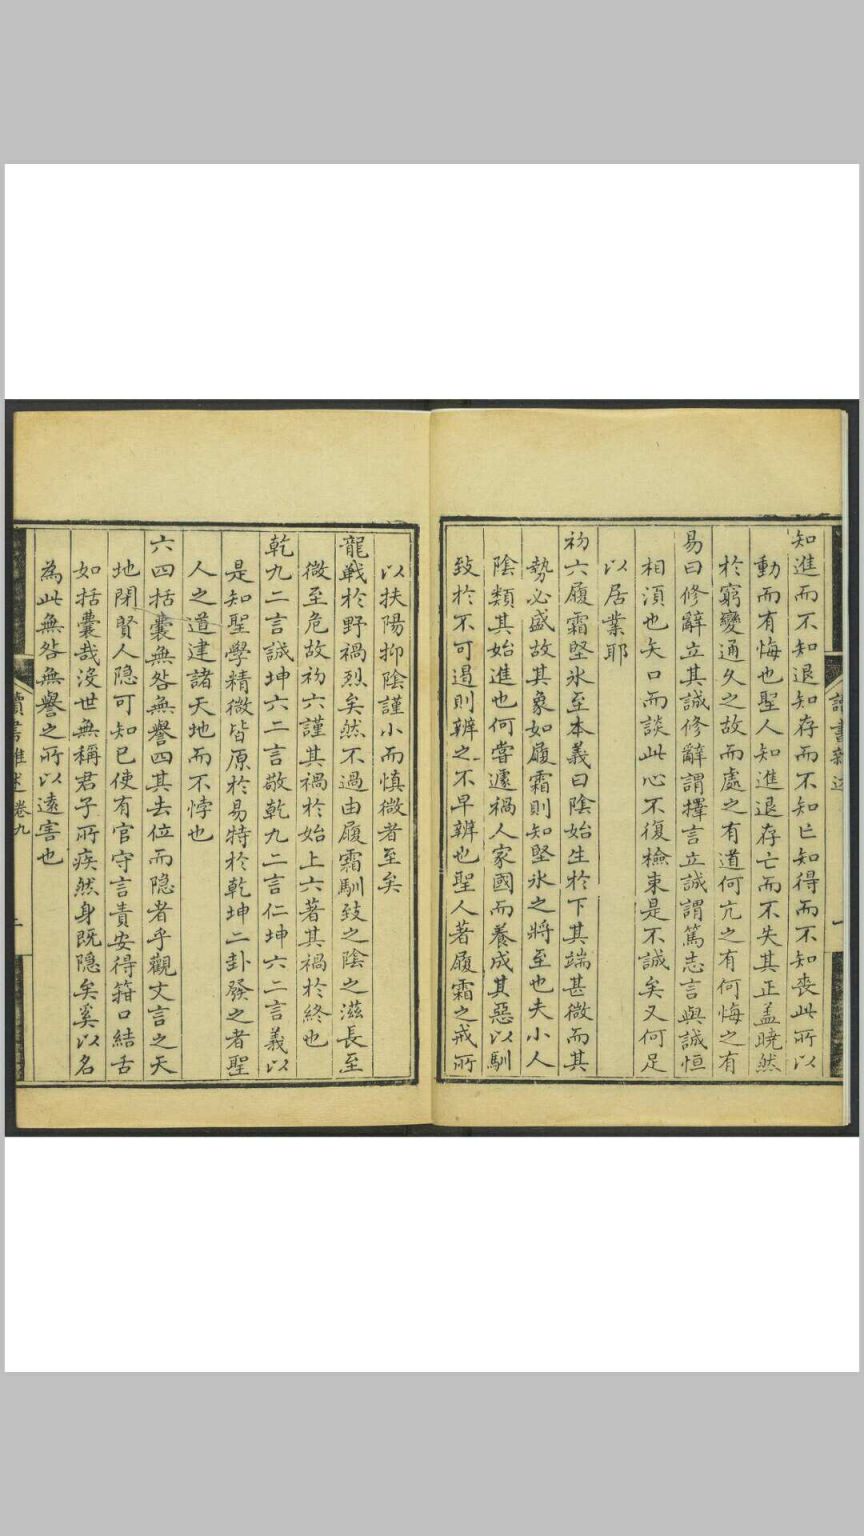 知進而不知退知存而不知亡知得而不知喪此所以
動而有悔也聖人知進退存亡而不失其正盖曉然
於窮變通久之故而處之有道何亢之有何悔之有
易曰修辭立其誠修辭謂擇言立誠謂篤志言與誠恒
相湏也矢口而談此心不復檢束是不誠矣又何足
以居業耶
初六履霜堅氷至本義曰陰始生於下其端甚微而其
勢必盛故其象如履霜則知堅氷之將至也夫小人
陰類其始進也何嘗遽禍人家國而養成其惡以馴
致於不可遏則辨之不早辨也聖人著履霜之戒所
以扶陽抑陰謹小而慎微者至矣
龍戰於野禍烈矣然不過由履霜馴致之陰之滋長至
微至危故初六謹其禍於始上六著其禍於終也
乾九二言誠坤六二言敬乾九二言仁坤六二言義以
是知聖學精微皆原於易特於乾坤二卦發之者聖
人之道建諸天地而不悖也
六四括囊無咎無譽四其去位而隐者乎觀文言之天
地閉賢人隐可知已使有官守言責安得箝口結舌
如括囊哉沒世無稱君子所疾然身既隐矣奚以名
為此無咎無譽之所以遠害也
讀書雜述 卷九
二